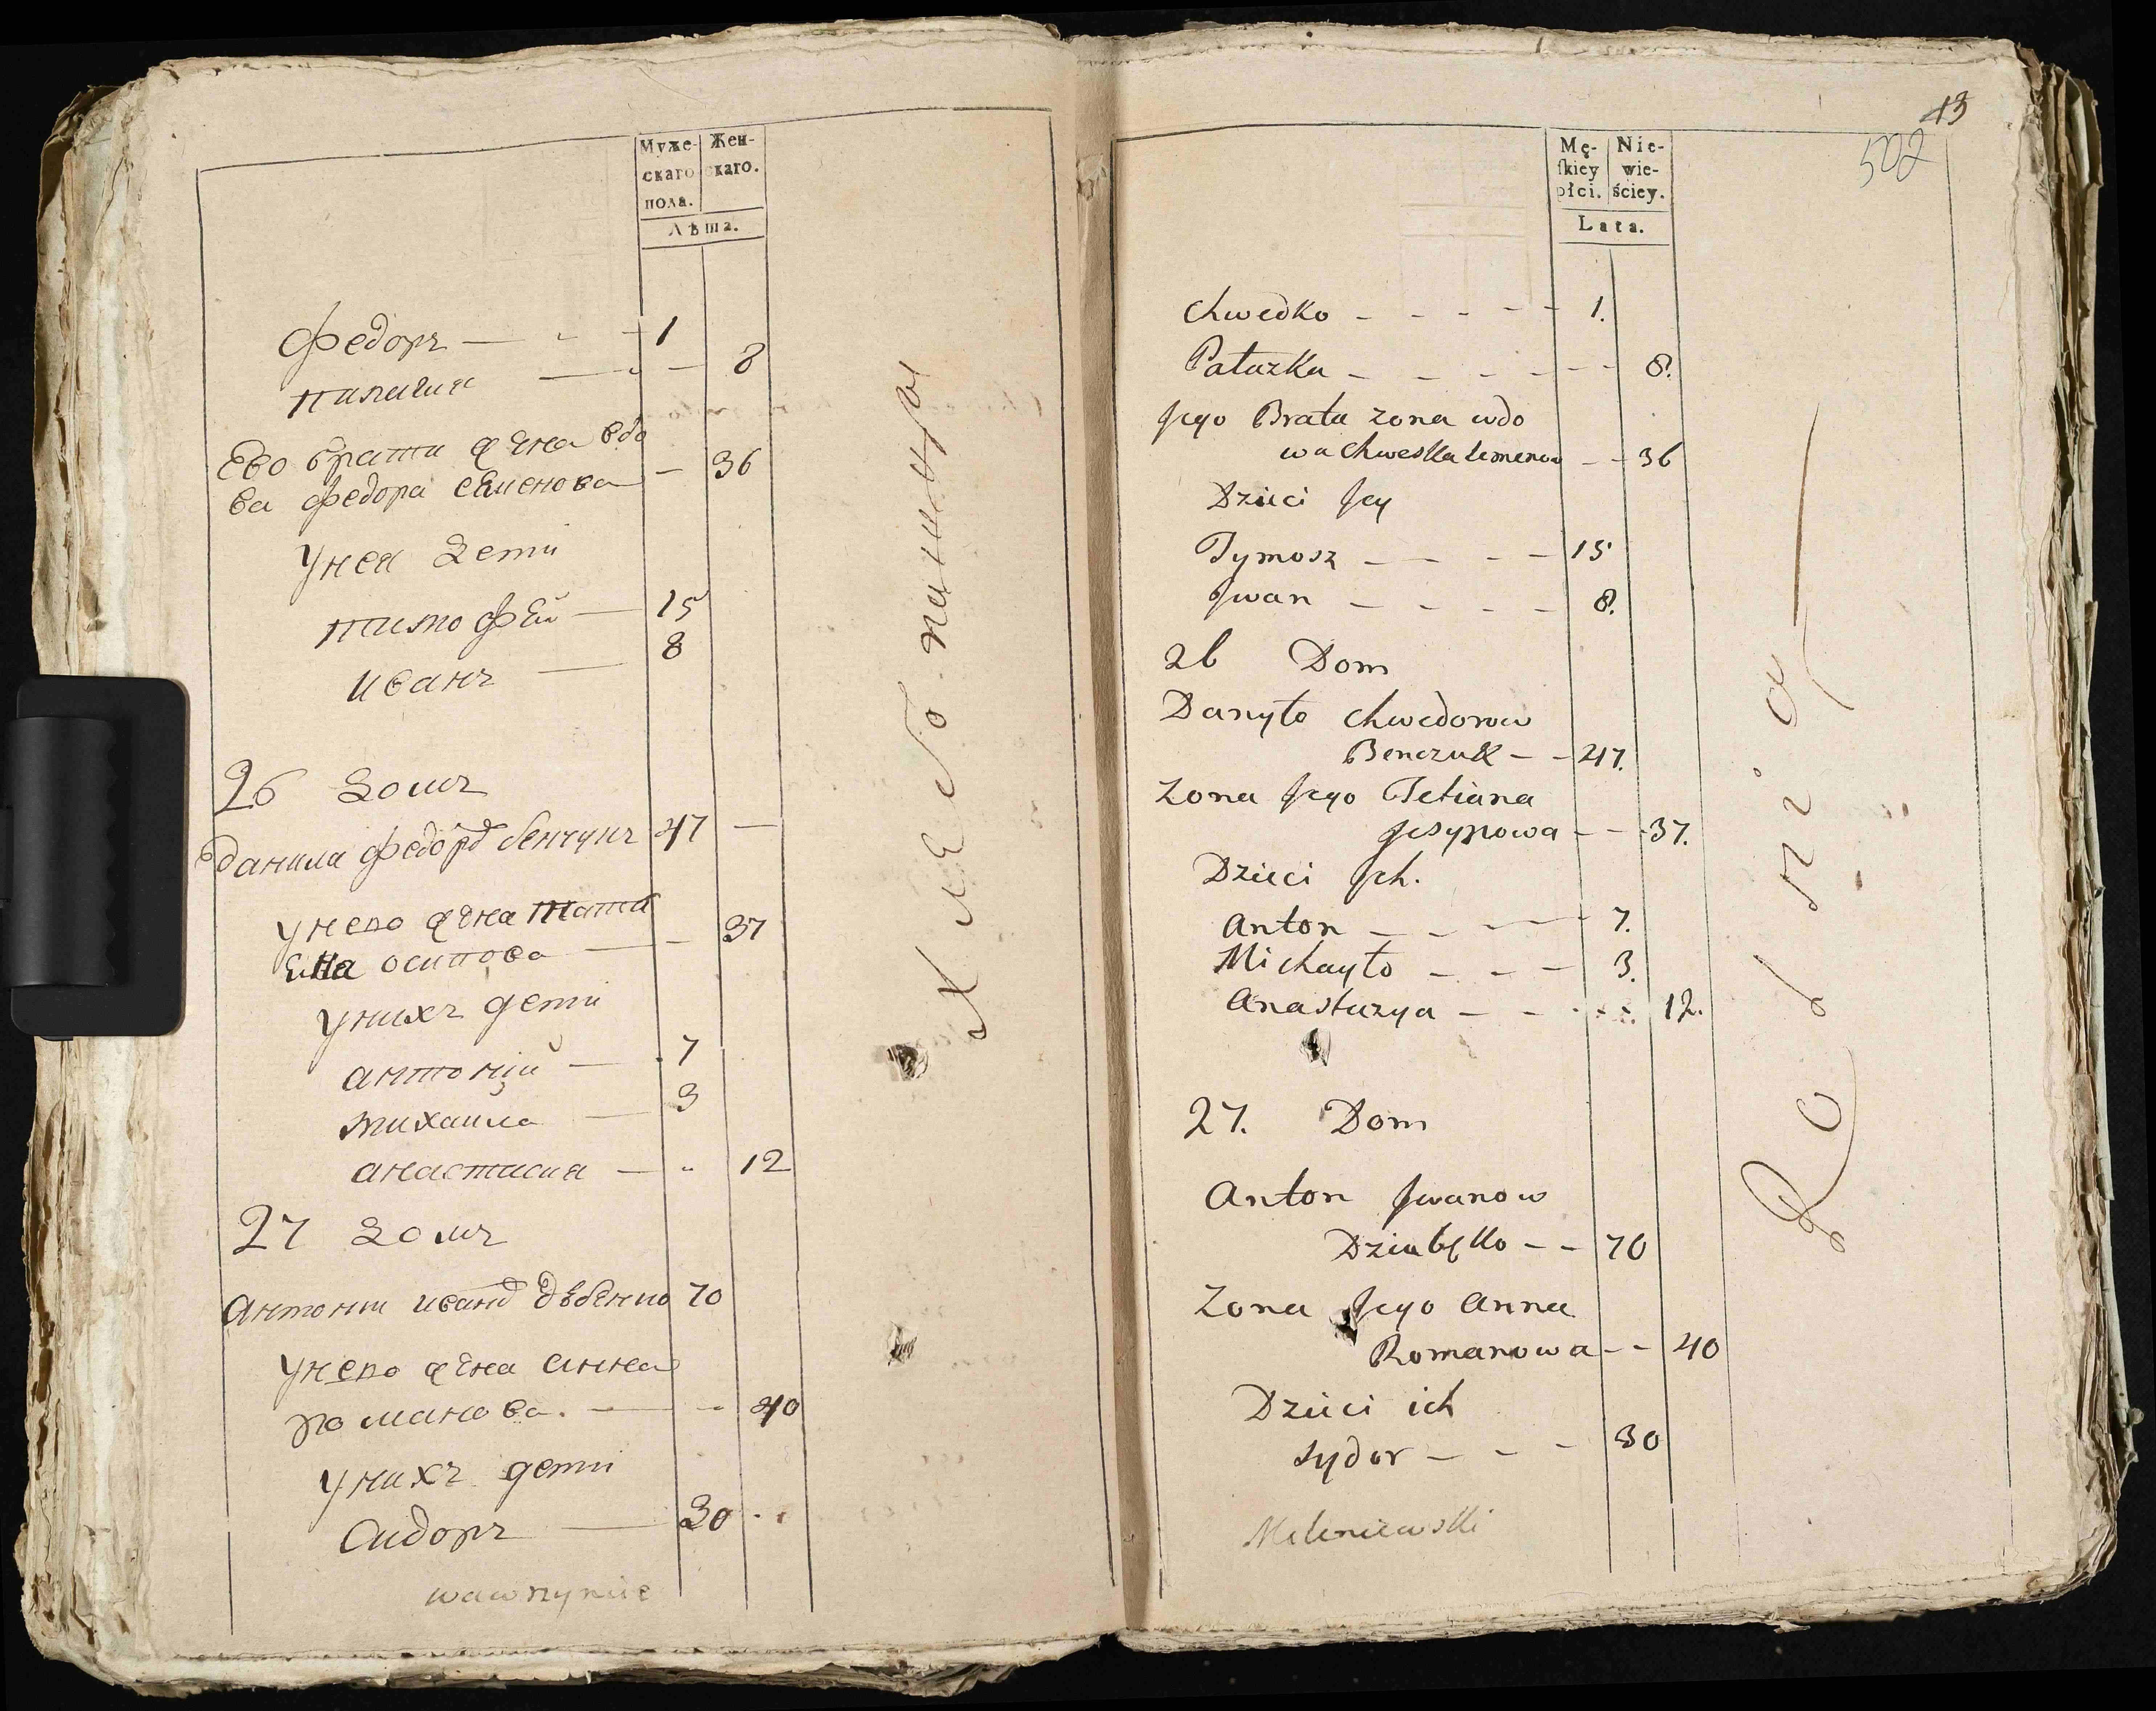 Муже-
скаго
пола.
Жен-
скаго.
Лѣта.
Федоръ — 1
пилагия — 8
Ево брата жена вдо
ва федора семенова — 36
У нея дети
тимофей — 15
иванъ — 8
26 домъ
данила федоров бенчукъ 47 —
У него жена татя
ена осипова — 37
У нихъ дети
антоній — 7
михаила — 3
анастасия — 12
27 домъ
антони иванов 70
У него жена анна
романова. — 40
У нихъ дети
сидоръ — 30
хлебопашцы
13
502
Mę-
skiey
płci.
Nie-
wie-
ściey.
Lata.
Chwedko - - - - - 1.
Pałazka - - - - - - 8.
Jego Brata zona wdo
wa Chweska Semenow - - 36
Dzieci Jey
Tymosz - - - - 15
Jwan - - - - 8.
26 Dom
Danyło Chwedorow
Benczuk - - 47.
Zona Jego Tetiana
Jesypowa - - 37.
Dzieci Jch.
Anton - - - - 7.
Michayło - - - 3.
Anastazya - - - - 12.
27. Dom
Anton Jwanow
- - 70
Zona Jego Anna
Romanowa - - 40
Dzieci ich
Sydor - - - 30
Rolnicy